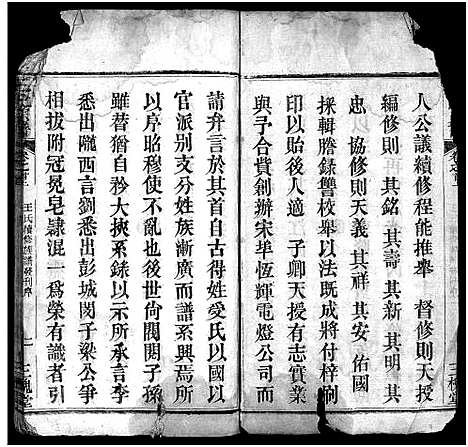 人公議續修程能推舉 督修則天授
編修則 其銘 其壽 其新 其明 其
忠 協修則天義 其祥 其安 佑國
採輯謄錄讐校舉以法既成將付梓刷
印以貽後人適 子卿天授有志實業
與予合貲創辦宋埠恆輝電燈公司而
請弁言於其首自古得姓受氏以國以
官派別支分姓族漸廣而譜系興焉所
以序昭穆使不亂也後世尚閥閱子孫
雖替猶自大挾系錄以示所承言李
悉出隴西言劉悉出彭城閔子梁公爭
相扳附冠冕皂隸混一為榮有識者引
王氏續修族譜發刊序
一
三槐堂
三槐堂